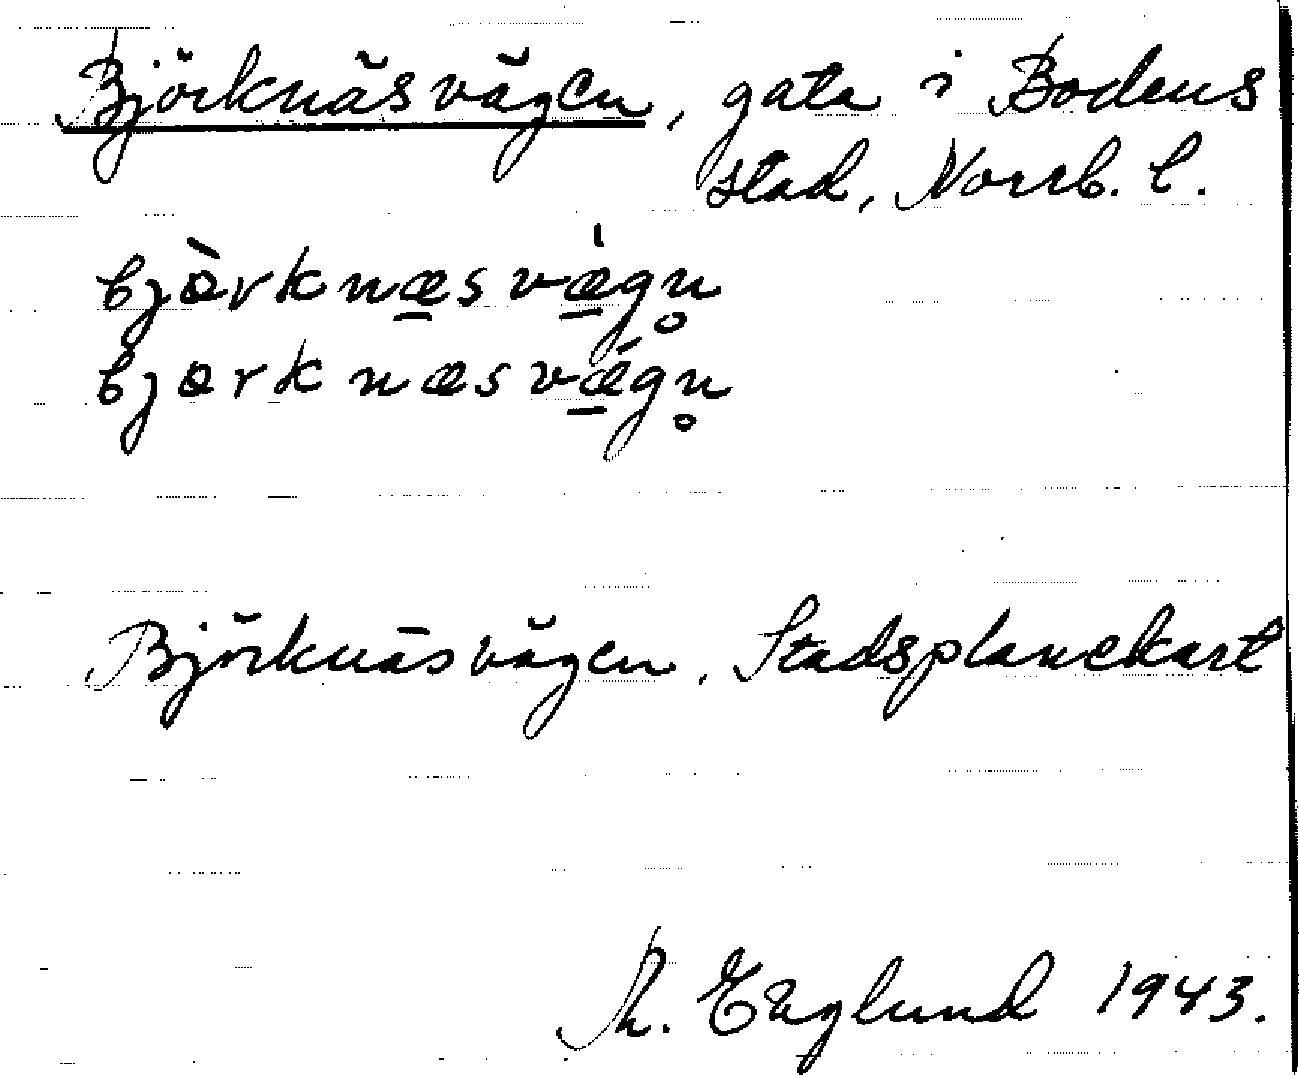 Björknäsvägen, gata i Bodens
stad, Norrb. l.
bjə̀rknæ̲svæ̲̍gn̥
bjərknæsvǽ̲gn̥
Björknäsvägen, Stadsplanekart
R. Englund 1943.